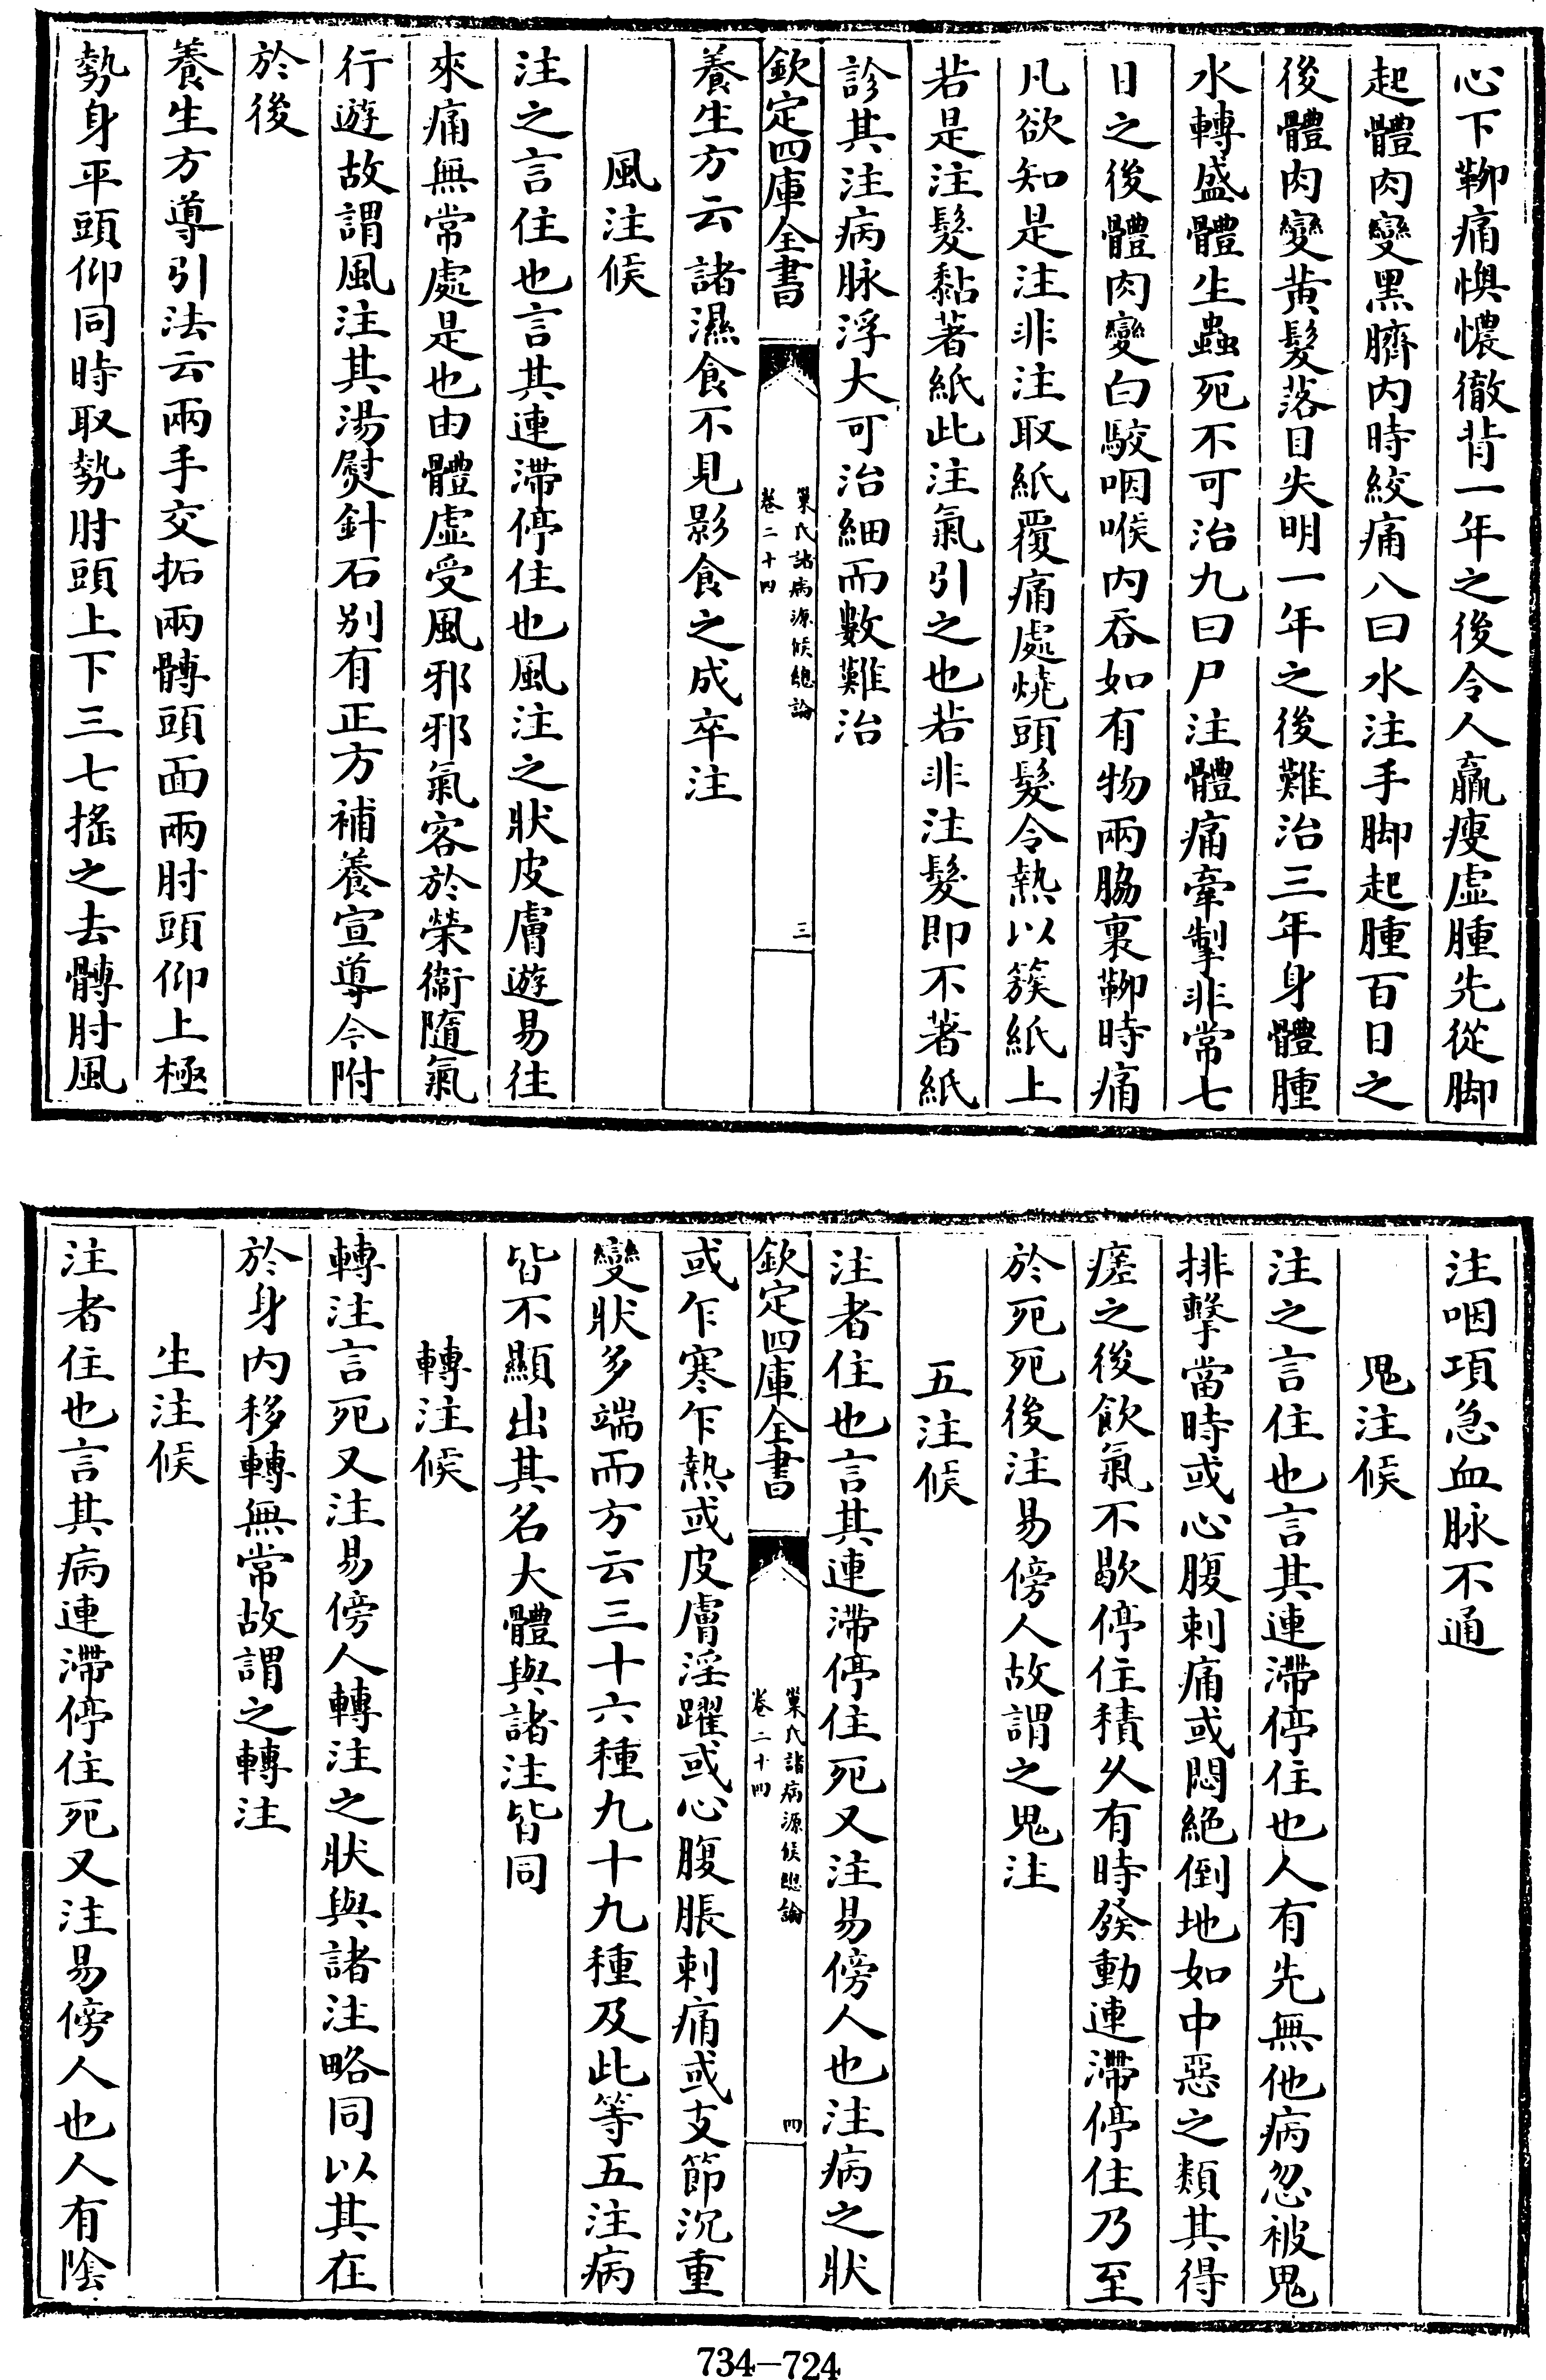 心下鞕痛懊憹徹背一年之後令人羸瘦虛腫先從脚
起體肉變黑臍内時絞痛八曰水注手脚起腫百日之
後體肉變黄髮落目失明一年之後難治三年身體腫
水轉盛體生蟲死不可治九曰尸注體痛牽掣非常七
日之後體肉變白駮咽喉内吞如有物兩脇裏鞕時痛
凡欲知是注非注取紙覆痛處燒頭髮令熱以簇紙上
若是注髮黏著紙此注氣引之也若非注髮即不著紙
診其注病脉浮大可治細而數難治
欽定四庫全書
巢氏諸病源候總論
卷二十四
三
養生方云諸濕食不見影食之成卒注
風注候
注之言住也言其連滯停住也風注之狀皮膚遊易往
來痛無常處是也由體虛受風邪邪氣客於榮衞隨氣
行遊故謂風注其湯熨針石别有正方補養宣導今附
於後
養生方導引法云兩手交拓兩髆頭面兩肘頭仰上極
勢身平頭仰同時取勢肘頭上下三七摇之去髆肘風
注咽項急血脉不通
鬼注候
注之言住也言其連滯停住也人有先無他病忽被鬼
排擊當時或心腹刺痛或悶絶倒地如中惡之類其得
瘥之後飲氣不歇停住積乆有時發動連滯停住乃至
於死死後注易傍人故謂之鬼注
五注候
注者住也言其連滯停住死又注易傍人也注病之狀
欽定四庫全書
巢氏諸病源候總論
卷二十四
四
或乍寒乍熱或皮膚淫躍或心腹脹刺痛或支節沉重
變狀多端而方云三十六種九十九種及此等五注病
皆不顯出其名大體與諸注皆同
轉注候
轉注言死又注易傍人轉注之狀與諸注略同以其在
於身内移轉無常故謂之轉注
生注候
注者住也言其病連滯停住死又注易傍人也人有陰
734—724